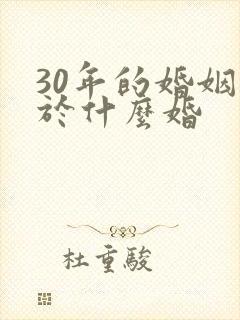 30年的婚姻
於什麼婚
杜重駿